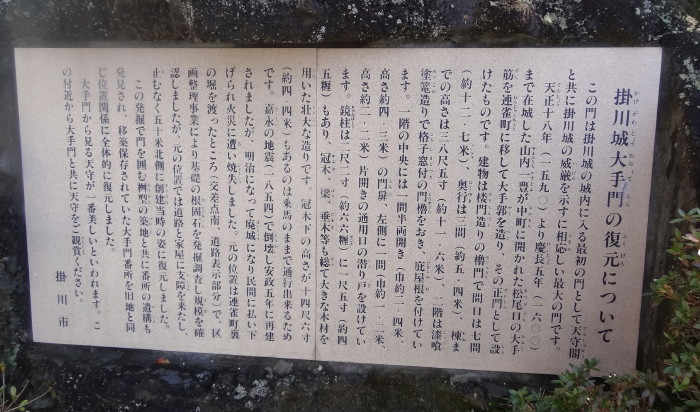 掛川城大手門の復元について
この門は掛川城の城内に入る最初の門として天守閣
と共に掛川城の威厳を示すに相応しい最大の門です。
天正十八年(一五九〇)より慶長五年(一六〇〇)
まで在城した山内一豊が中町に開かれた松尾口の大手
筋を連雀町に移して大手郭を造り、その正門として設
けたものです。建物は楼門造りの櫓門で間口は七間
(約十二・七米)、奥行は三間(約五・四米)、棟ま
での高さは三八尺五寸(約十一・六米)、二階は漆喰
塗篭造りで格子窓付の門櫓をおき、庇屋根を付けてい
ます。一階の中央には一間半両開き(巾約二・四米、
高さ約四・三米)の門扉、左側に一間(巾約一・二米、
高さ約二・二米)片開きの通用口の潜り戸を設けてい
ます。鏡柱は二尺二寸(約六六糎)に一尺五寸(約四
五糎)もあり、冠木、梁、垂木等も総て大きな木材を
用いた壮大な造りです。冠木下の高さが十四尺六寸
(約四・四米)もあるのは乗馬のままで通行出来るため
です。嘉永の地震(一八五四)で倒壊し安政五年に再建
されましたが、明治になって廃城になり民間に払い下
げられ火災に遭い焼失しました。元の位置は連雀町裏
の堀を渡ったところ(交差点南、道路表示部分)で、区
画整理事業により基礎の根固石を発掘調査し規模を確
認しましたが、元の位置では道路と家屋に支障を来たし、
止むなく五十米北側に創建当時の姿に復元しました。
この発掘で門を囲む桝型の築地と共に番所の遺構も
発見され、移築保存されていた大手門番所を旧地と同
じ位置関係に全体的に復元しました。
大手門から見る天守が一番美しいといわれます。こ
の付近から大手門と共に天守をご観賞ください。
掛川市